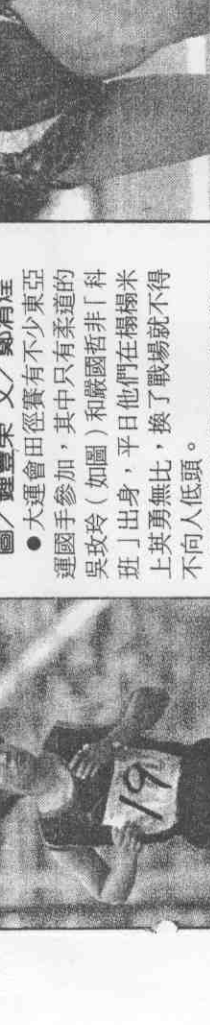 圖／鍾豐榮 文／鄭清煌
●大運會田徑賽有不少東亞
運國手參加，其中只有柔道的
吳玫玲（如圖）和嚴國哲非「科
班」出身，平日他們在榻榻米
上英勇無比，換了戰場就不得
不向人低頭。
19